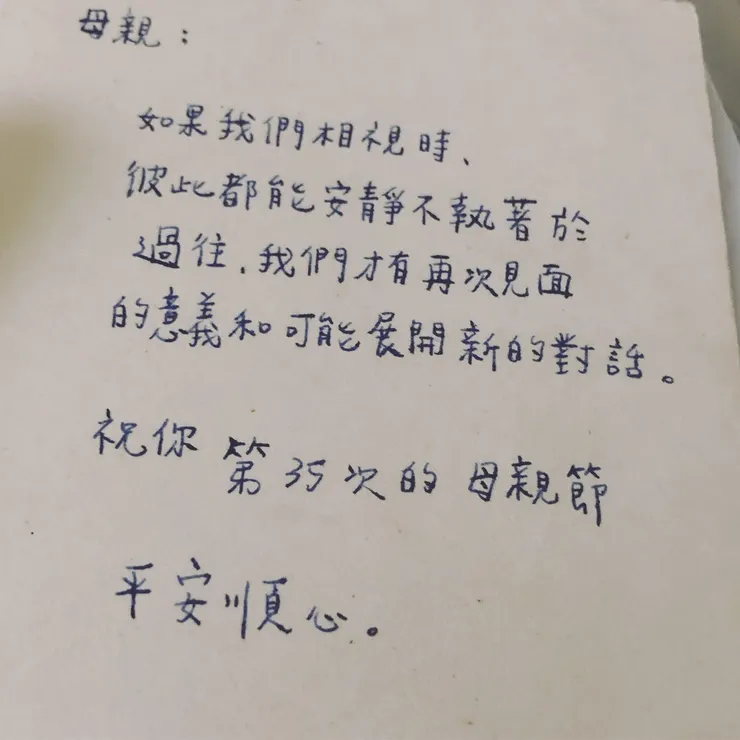 母親：
如果我們相視時、
彼此都能安靜不執著於
過往，我們才有再次見面
的意義和可能展開新的對話。
祝你 第35次的 母親節
平安順心。